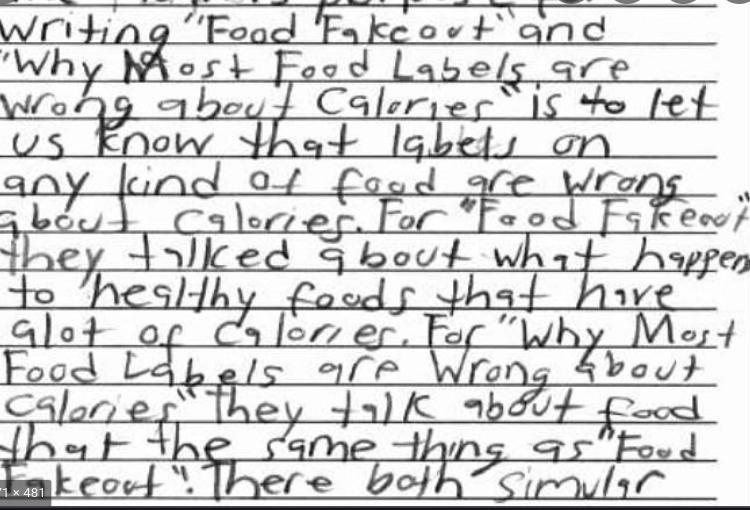 writing "Food Fakeout" and
"Why Most Food Labels are
wrong about Calories" is to let
us know that labels on
any kind of food are wrong
about calories. For "Food Fakeout"
they talked about what happen
to healthy foods that have
alot of calories. For "Why Most
Food Labels are Wrong About
Calories" they talk about food
that the same thing as "Food
Fakeout". There both simular
71 × 481